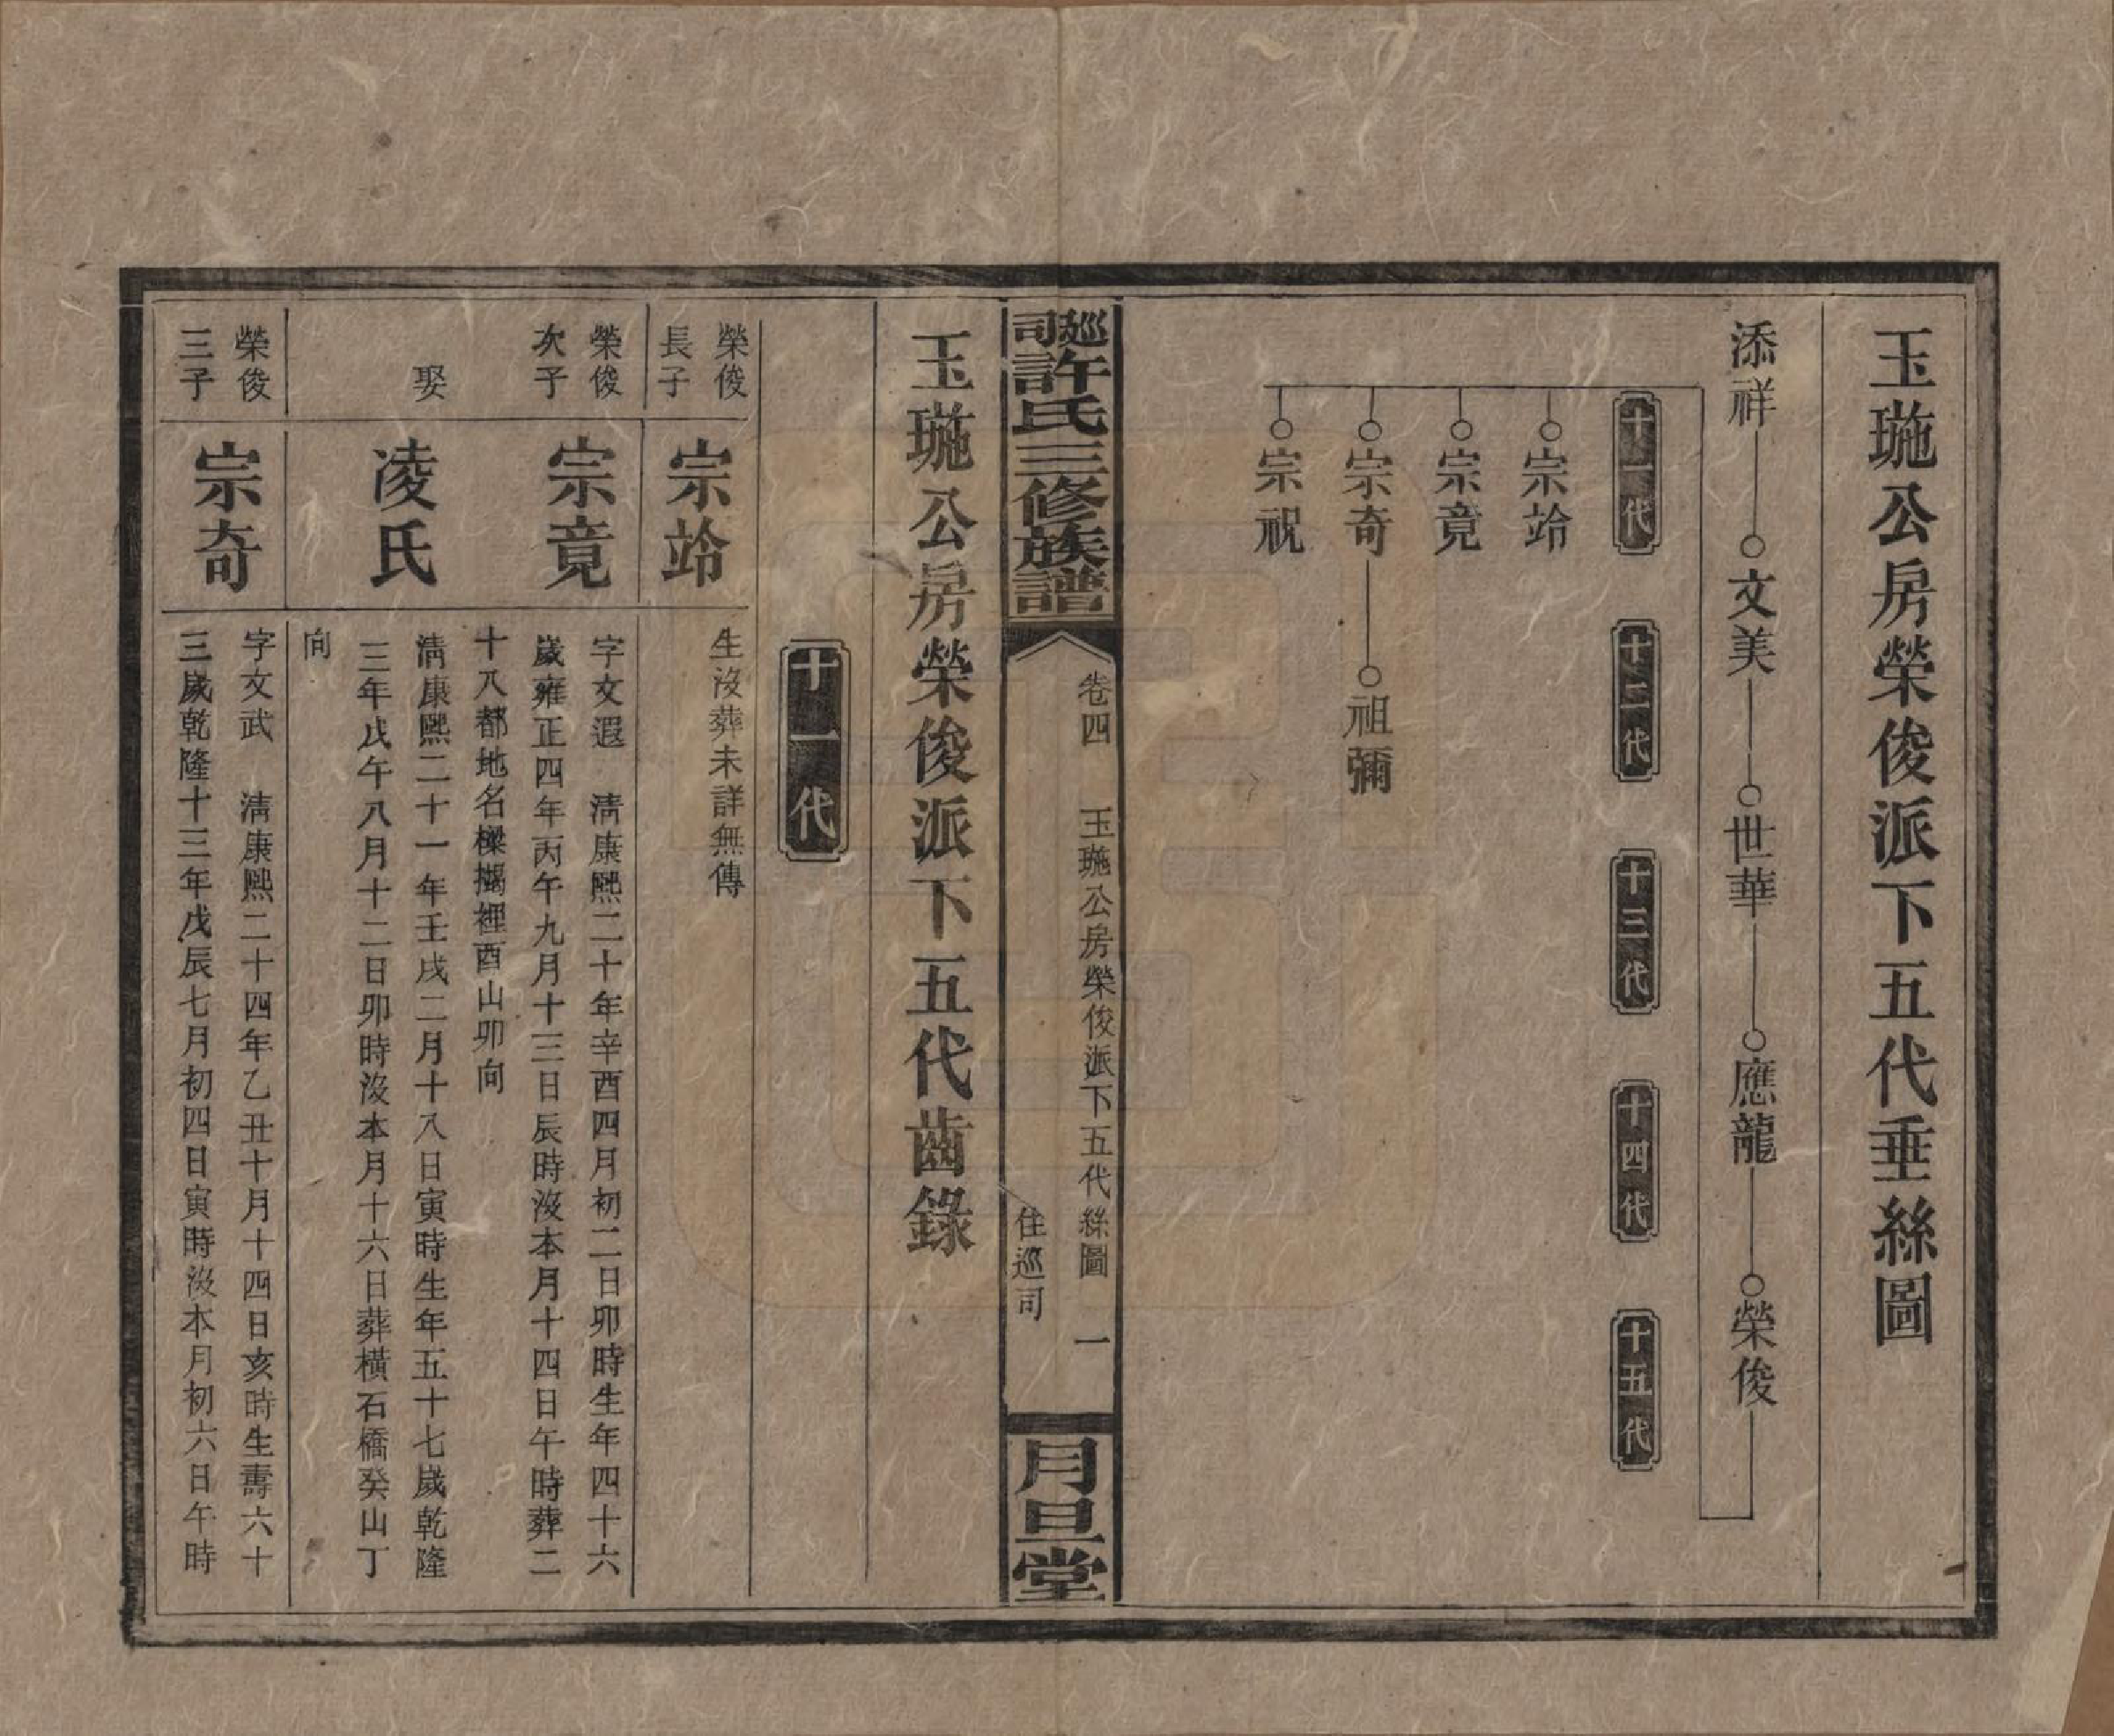 玉𤧚公房榮俊派下五代垂絲圖
添祥 文美 世華 應龍 榮俊
十一代 十二代 十三代 十四代 十五代
宗竛
宗竟
宗奇 祖彌
宗祝
巡司許氏三修族譜
卷四 玉𤧚公房榮俊派下五代絲圖 一
住巡司
月旦堂
玉𤧚公房榮俊派下五代齒錄
十一代
榮俊
長子
宗竛
生沒葬未詳無傳
榮俊
次子
宗竟
字文遐 淸康熙二十年辛酉四月初二日卯時生年四十六
歲雍正四年丙午九月十三日辰時沒本月十四日午時葬二
十八都地名樑搊裡酉山卯向
娶
凌氏
淸康熙二十一年壬戌二月十八日寅時生年五十七歲乾隆
三年戊午八月十二日卯時沒本月十六日葬橫石橋癸山丁
向
榮俊
三子
宗奇
字文武 淸康熙二十四年乙丑十月十四日亥時生壽六十
三歲乾隆十三年戊辰七月初四日寅時沒本月初六日午時